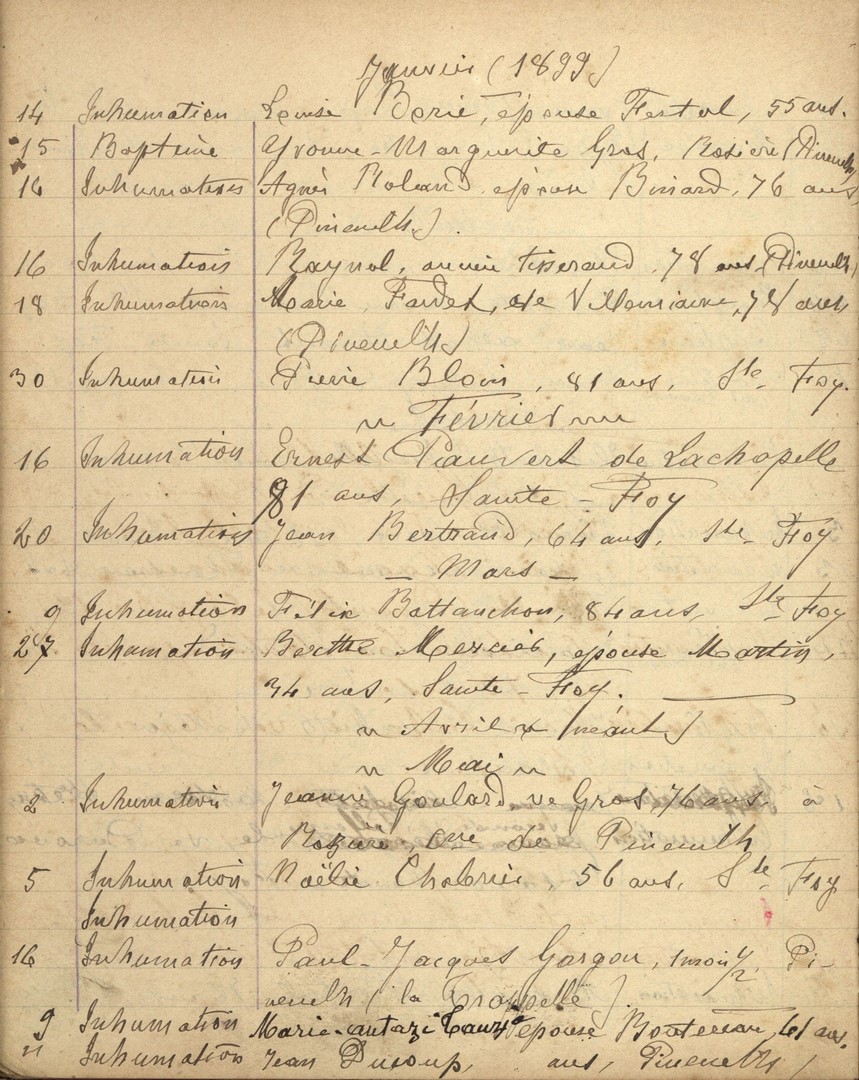 Janvier (1899)
14 Inhumation Louise Borie, épouse Festal, 55 ans.
15 Baptême Yvonne-Marguerite Gros, Rosière (Pineuilh)
16 Inhumation Agnès Roland épouse Binard, 76 ans
(Pineuilh).
16 Inhumation Raynal, ancien tisserand, 78 ans (Pineuilh)
18 Inhumation Marie Fardet, de 78 ans
(Pineuilh)
30 Inhumation Pierre Blois, 81 ans, Ste Foy.
Février
16 Inhumation Ernest Pauvert de Lachapelle
81 ans, Sainte-Foy
20 Inhumation Jean Bertrand, 64 ans, Ste Foy
- Mars -
9 Inhumation Félix Battanchon, 84 ans, Ste Foy
27 Inhumation Berthe Mercier, épouse Martin,
34 ans, Sainte-Foy.
Avril (néant)
Mai
2 Inhumation Jeanne Goulard ve Gros, 76 ans à
cne de Pineuilh
5 Inhumation Noëlie Chabrier, 56 ans, Ste Foy
Inhumation
16 Inhumation Paul-Jacques Gargou, 1 mois 1/2, Pi-
neuilh (la Trappelle).
9 Inhumation épouse 61 ans.
11 Inhumation Jean Ducoup, ans, Pineuilh